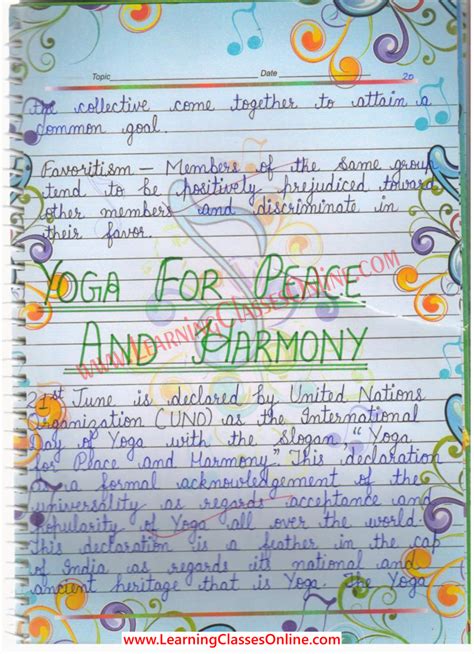 Topic Date 20
the collective come together to attain a
common goal.
Favoritism – Members of the same group
tend to be positively prejudiced toward
other members and discriminate in
their favor.
YOGA FOR PEACE
AND HARMONY
www.LearningClassesOnline.com
21st June is declared by United Nations
Organization (UNO) as the International
Day of Yoga with the slogan, "Yoga
for Peace and Harmony". This declaration
is a formal acknowledgement of the
universality as regards acceptance and
popularity of Yoga all over the world.
This declaration is a feather in the cap
of India as regards its national and
ancient heritage that is Yoga. The Yoga
www.LearningClassesOnline.com